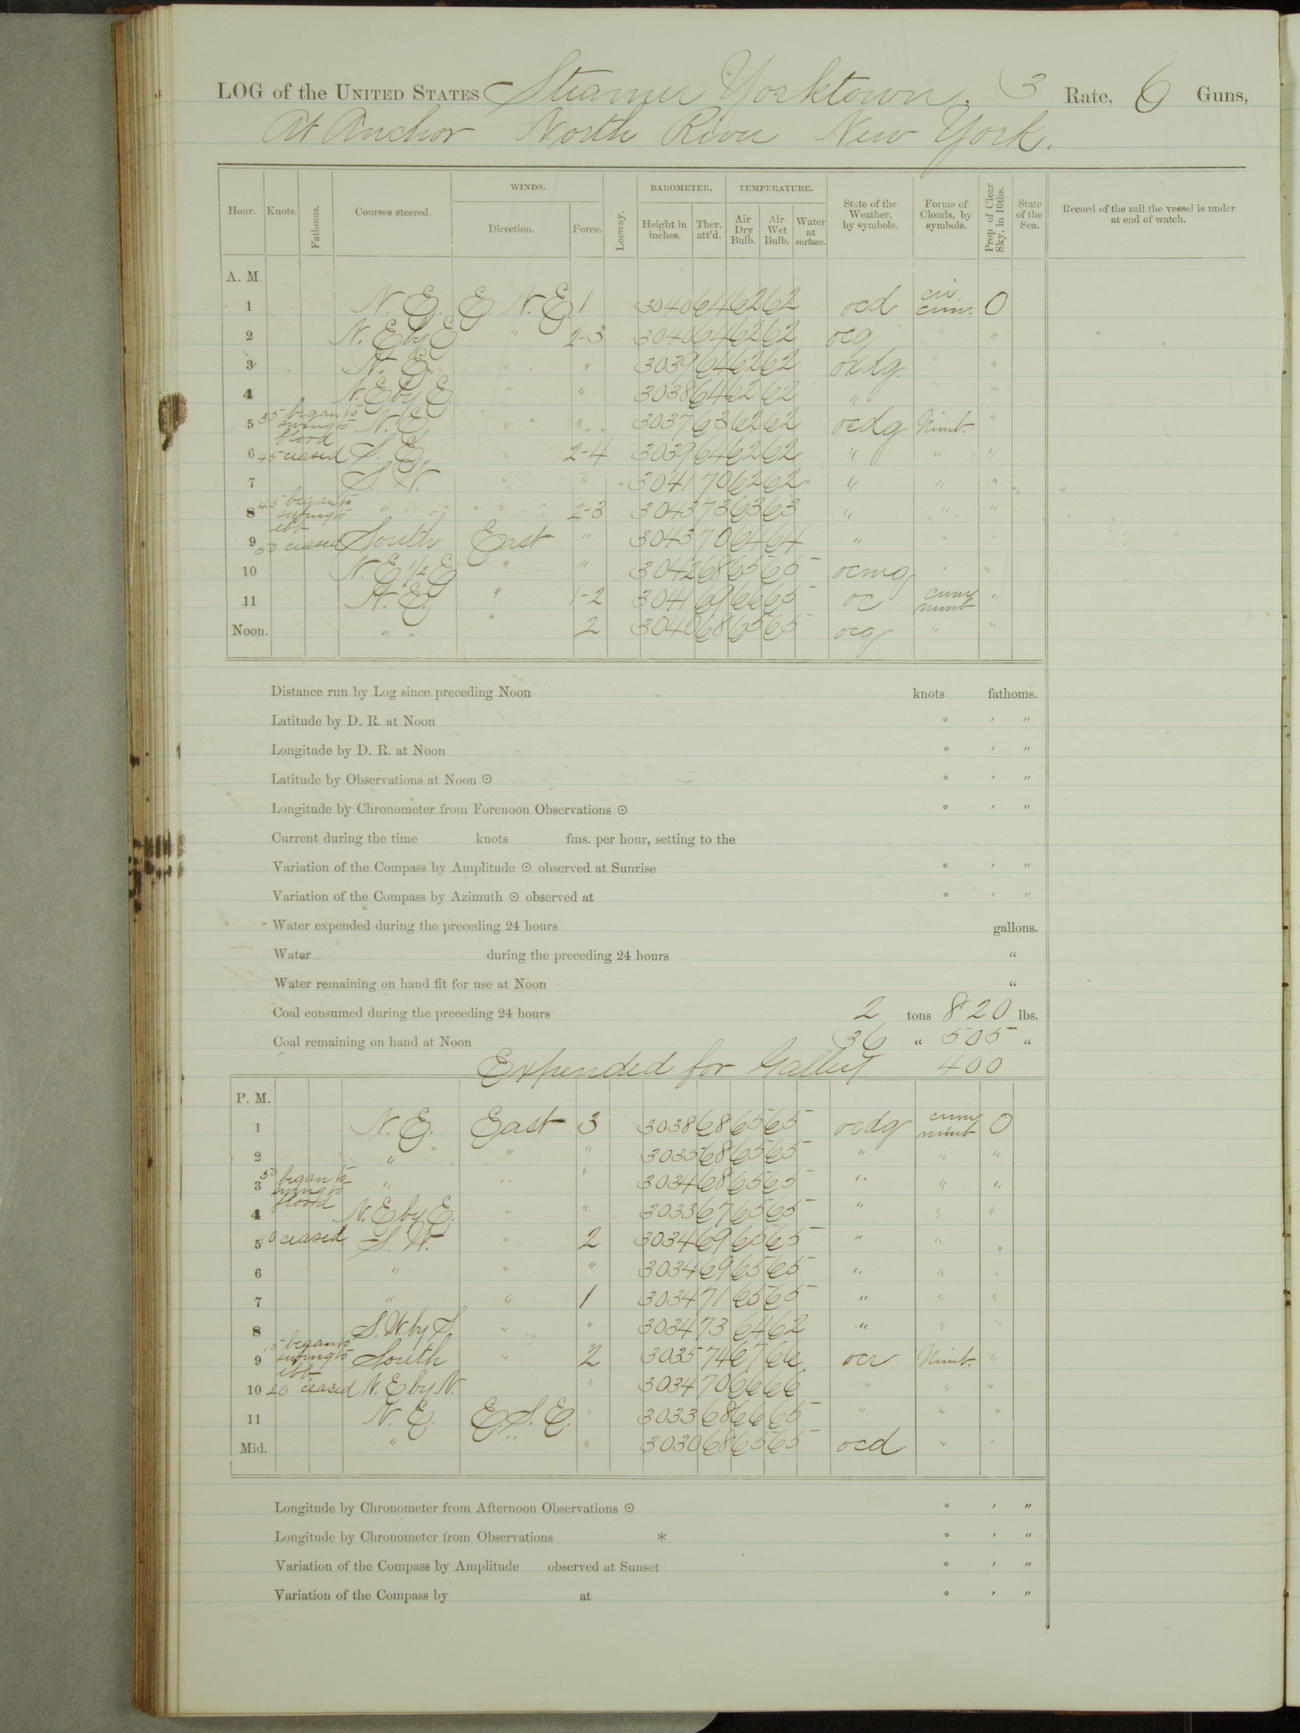 LOG of the UNITED STATES Steamer Yorktown, 3 Rate, 6 Guns,
At Anchor North River New York.
WINDS. BAROMETER. TEMPERATURE.
Hour. Knots. Fathoms. Courses steered. Direction. Force. Leeway. Height in inches. Ther. att'd. Air Dry Bulb. Air Wet Bulb. Water at surface. State of the Weather, by symbols. Forms of Clouds, by symbols. Prop of Clear Sky, in 10ths. State of the Sea. Record of the sail the vessel is under at end of watch.
A. M.
1 N. E. E N. E 1 3040 64 62 62 ocd cir. cum. 0
2 N. E by E " 2-3 3040 64 62 62 ocg " "
3 N. E. " " 3039 64 62 62 ocdg. " "
4 N. E by E " " 3038 64 62 62 " " "
5 35 began to swing to flood N. E. " " 3037 63 62 62 ocdg Nimb. "
6 45 ceased S. E. " 2-4 3039 64 62 62 " " "
7 S. W. " " 3041 70 62 62 " " "
8 45 began to swing to ebb " " 2-3 3043 73 63 63 " " "
9 50 ceased South East " 3043 70 64 64 " " "
10 N. E 1/2 E " " 3042 68 65 65 ocmg " "
11 N. E. " 1-2 3041 69 66 65 oc cum nimb "
Noon. " " 2 3040 68 65 65 ocg " "
Distance run by Log since preceding Noon knots fathoms.
Latitude by D. R. at Noon ° ′ ″
Longitude by D. R. at Noon ° ′ ″
Latitude by Observations at Noon ☉ ° ′ ″
Longitude by Chronometer from Forenoon Observations ☉ ° ′ ″
Current during the time knots fms. per hour, setting to the
Variation of the Compass by Amplitude ☉ observed at Sunrise ° ′ ″
Variation of the Compass by Azimuth ☉ observed at ° ′ ″
Water expended during the preceding 24 hours gallons.
Water during the preceding 24 hours "
Water remaining on hand fit for use at Noon "
Coal consumed during the preceding 24 hours 2 tons 820 lbs.
Coal remaining on hand at Noon 36 " 505 "
Expended for Galley 400
P. M.
1 N. E. East 3 3038 68 65 65 ocdg cum nimb 0
2 " " " 3035 68 65 65 " " "
3 50 began to swing to flood " " " 3034 68 65 65 " " "
4 N. E by E. " " 3033 67 65 65 " " "
5 10 ceased S. W. " 2 3034 69 65 65 " " "
6 " " " 3034 69 65 65 " " "
7 " " 1 3034 71 65 65 " " "
8 S. W. by S. " " 3034 73 64 62 " " "
9 15 began to swing to ebb South " 2 3035 74 67 66 ocr Nimb. "
10 20 ceased N. E by N. " 3034 70 66 66 " " "
11 N. E. E. S. E. " 3033 68 66 65 " " "
Mid. " " " 3030 68 65 65 ocd " "
Longitude by Chronometer from Afternoon Observations ☉ ° ′ ″
Longitude by Chronometer from Observations * ° ′ ″
Variation of the Compass by Amplitude observed at Sunset ° ′ ″
Variation of the Compass by at ° ′ ″